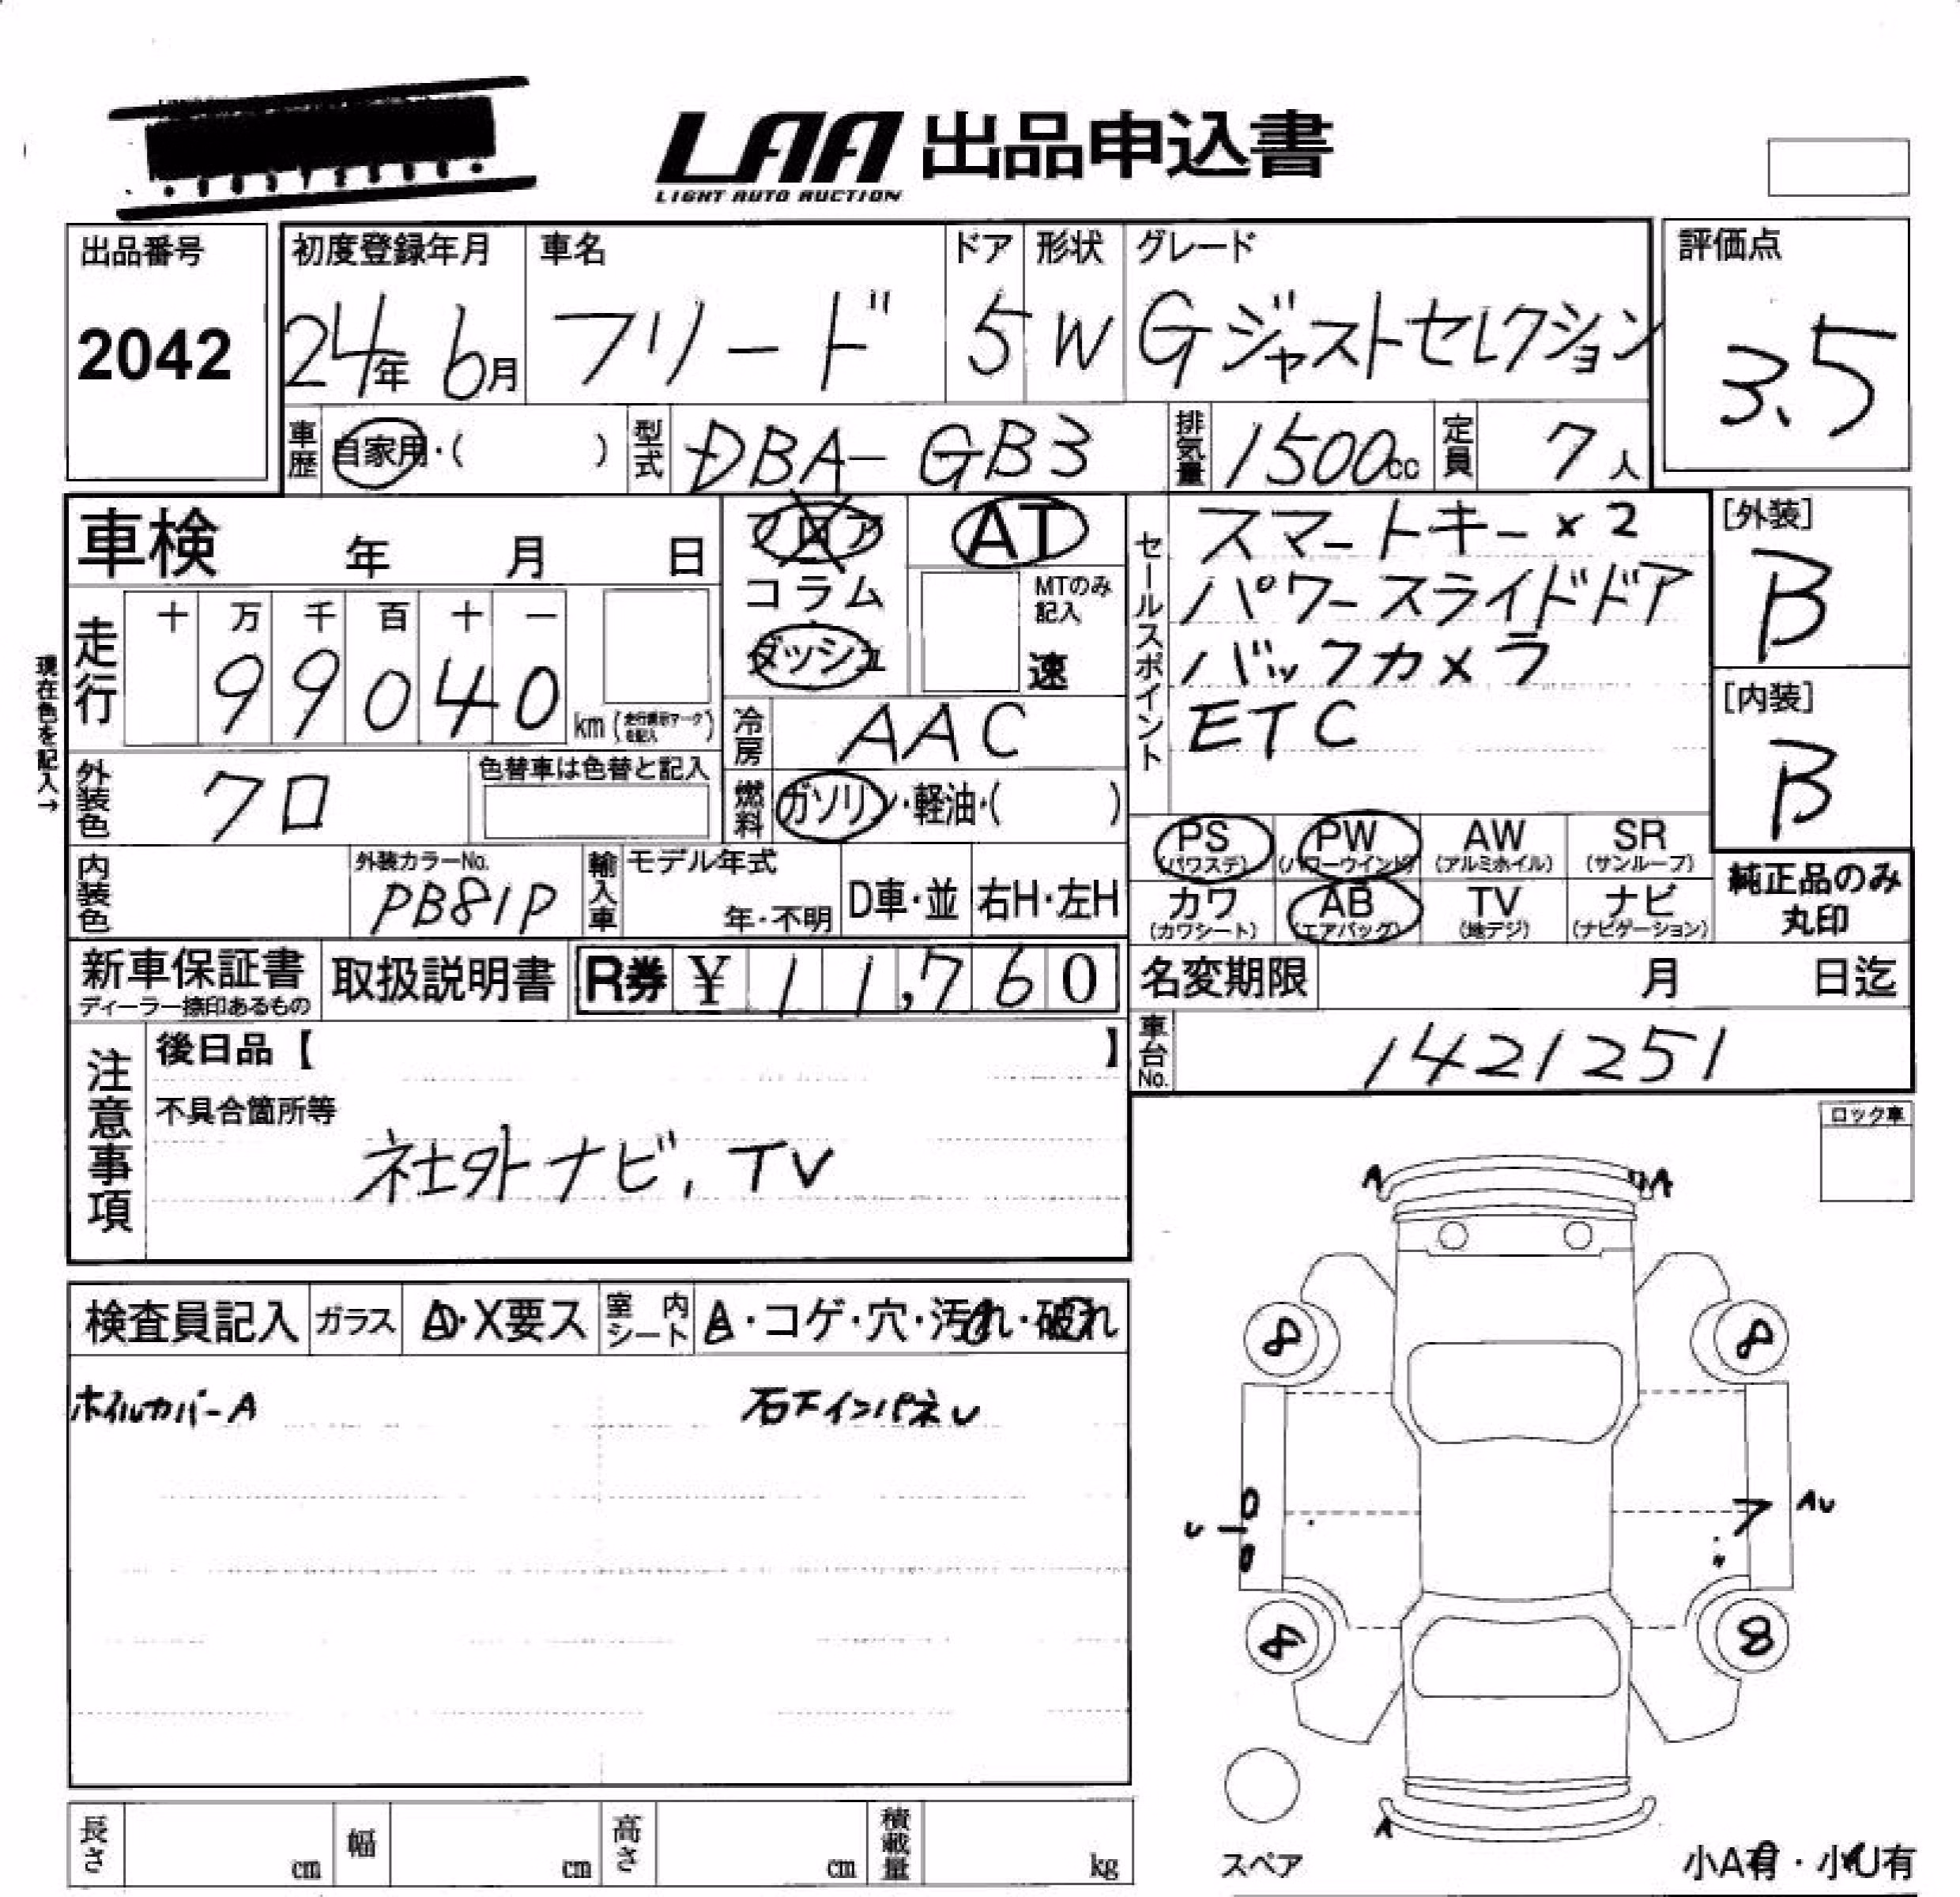 LAA 出品申込書
LIGHT AUTO AUCTION
出品番号 初度登録年月 車名 ドア 形状 グレード 評価点
2042 24年 6月 フリード 5 W Gジャストセレクション 3.5
車歴 自家用・( ) 型式 DBA-GB3 排気量 1500cc 定員 7人
車検 年 月 日
フロア
コラム
ダッシュ
AT
MTのみ記入
速
セールスポイント
スマートキー×2
パワースライドドア
バックカメラ
ETC
[外装]
B
[内装]
B
現在色を記入→
走行 十 万 千 百 十 一
99040 km (走行表示マークを記入)
冷房 AAC
外装色 クロ 色替車は色替と記入
燃料 ガソリン・軽油・( )
PS (パワステ) PW (パワーウインド) AW (アルミホイル) SR (サンルーフ)
カワ (カワシート) AB (エアバッグ) TV (地デジ) ナビ (ナビゲーション)
純正品のみ丸印
内装色 外装カラーNo. PB81P 輸入車 モデル年式 年・不明 D車・並 右H・左H
新車保証書 ディーラー捺印あるもの 取扱説明書 R券 ¥ 11,760 名変期限 月 日迄
車台No. 1421251
注意事項
後日品【 】
不具合箇所等
社外ナビ, TV
ロック車
検査員記入 ガラス A・X要ス 室内シート A・コゲ・穴・汚れ・破れ
ホイルカバーA 右下インパネU
A A
8 8
U 7 AU
8 8
A
スペア
小A有・小U有
長さ cm 幅 cm 高さ cm 積載量 kg